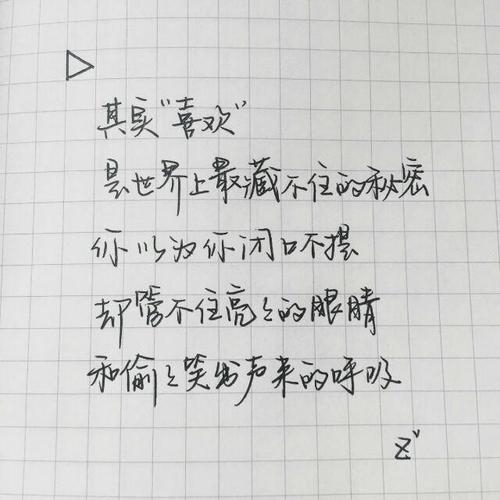 其实“喜欢”
是世界上最藏不住的秘密
你以为你闭口不提
却管不住亮々的眼睛
和偷々笑出声来的呼吸
Z